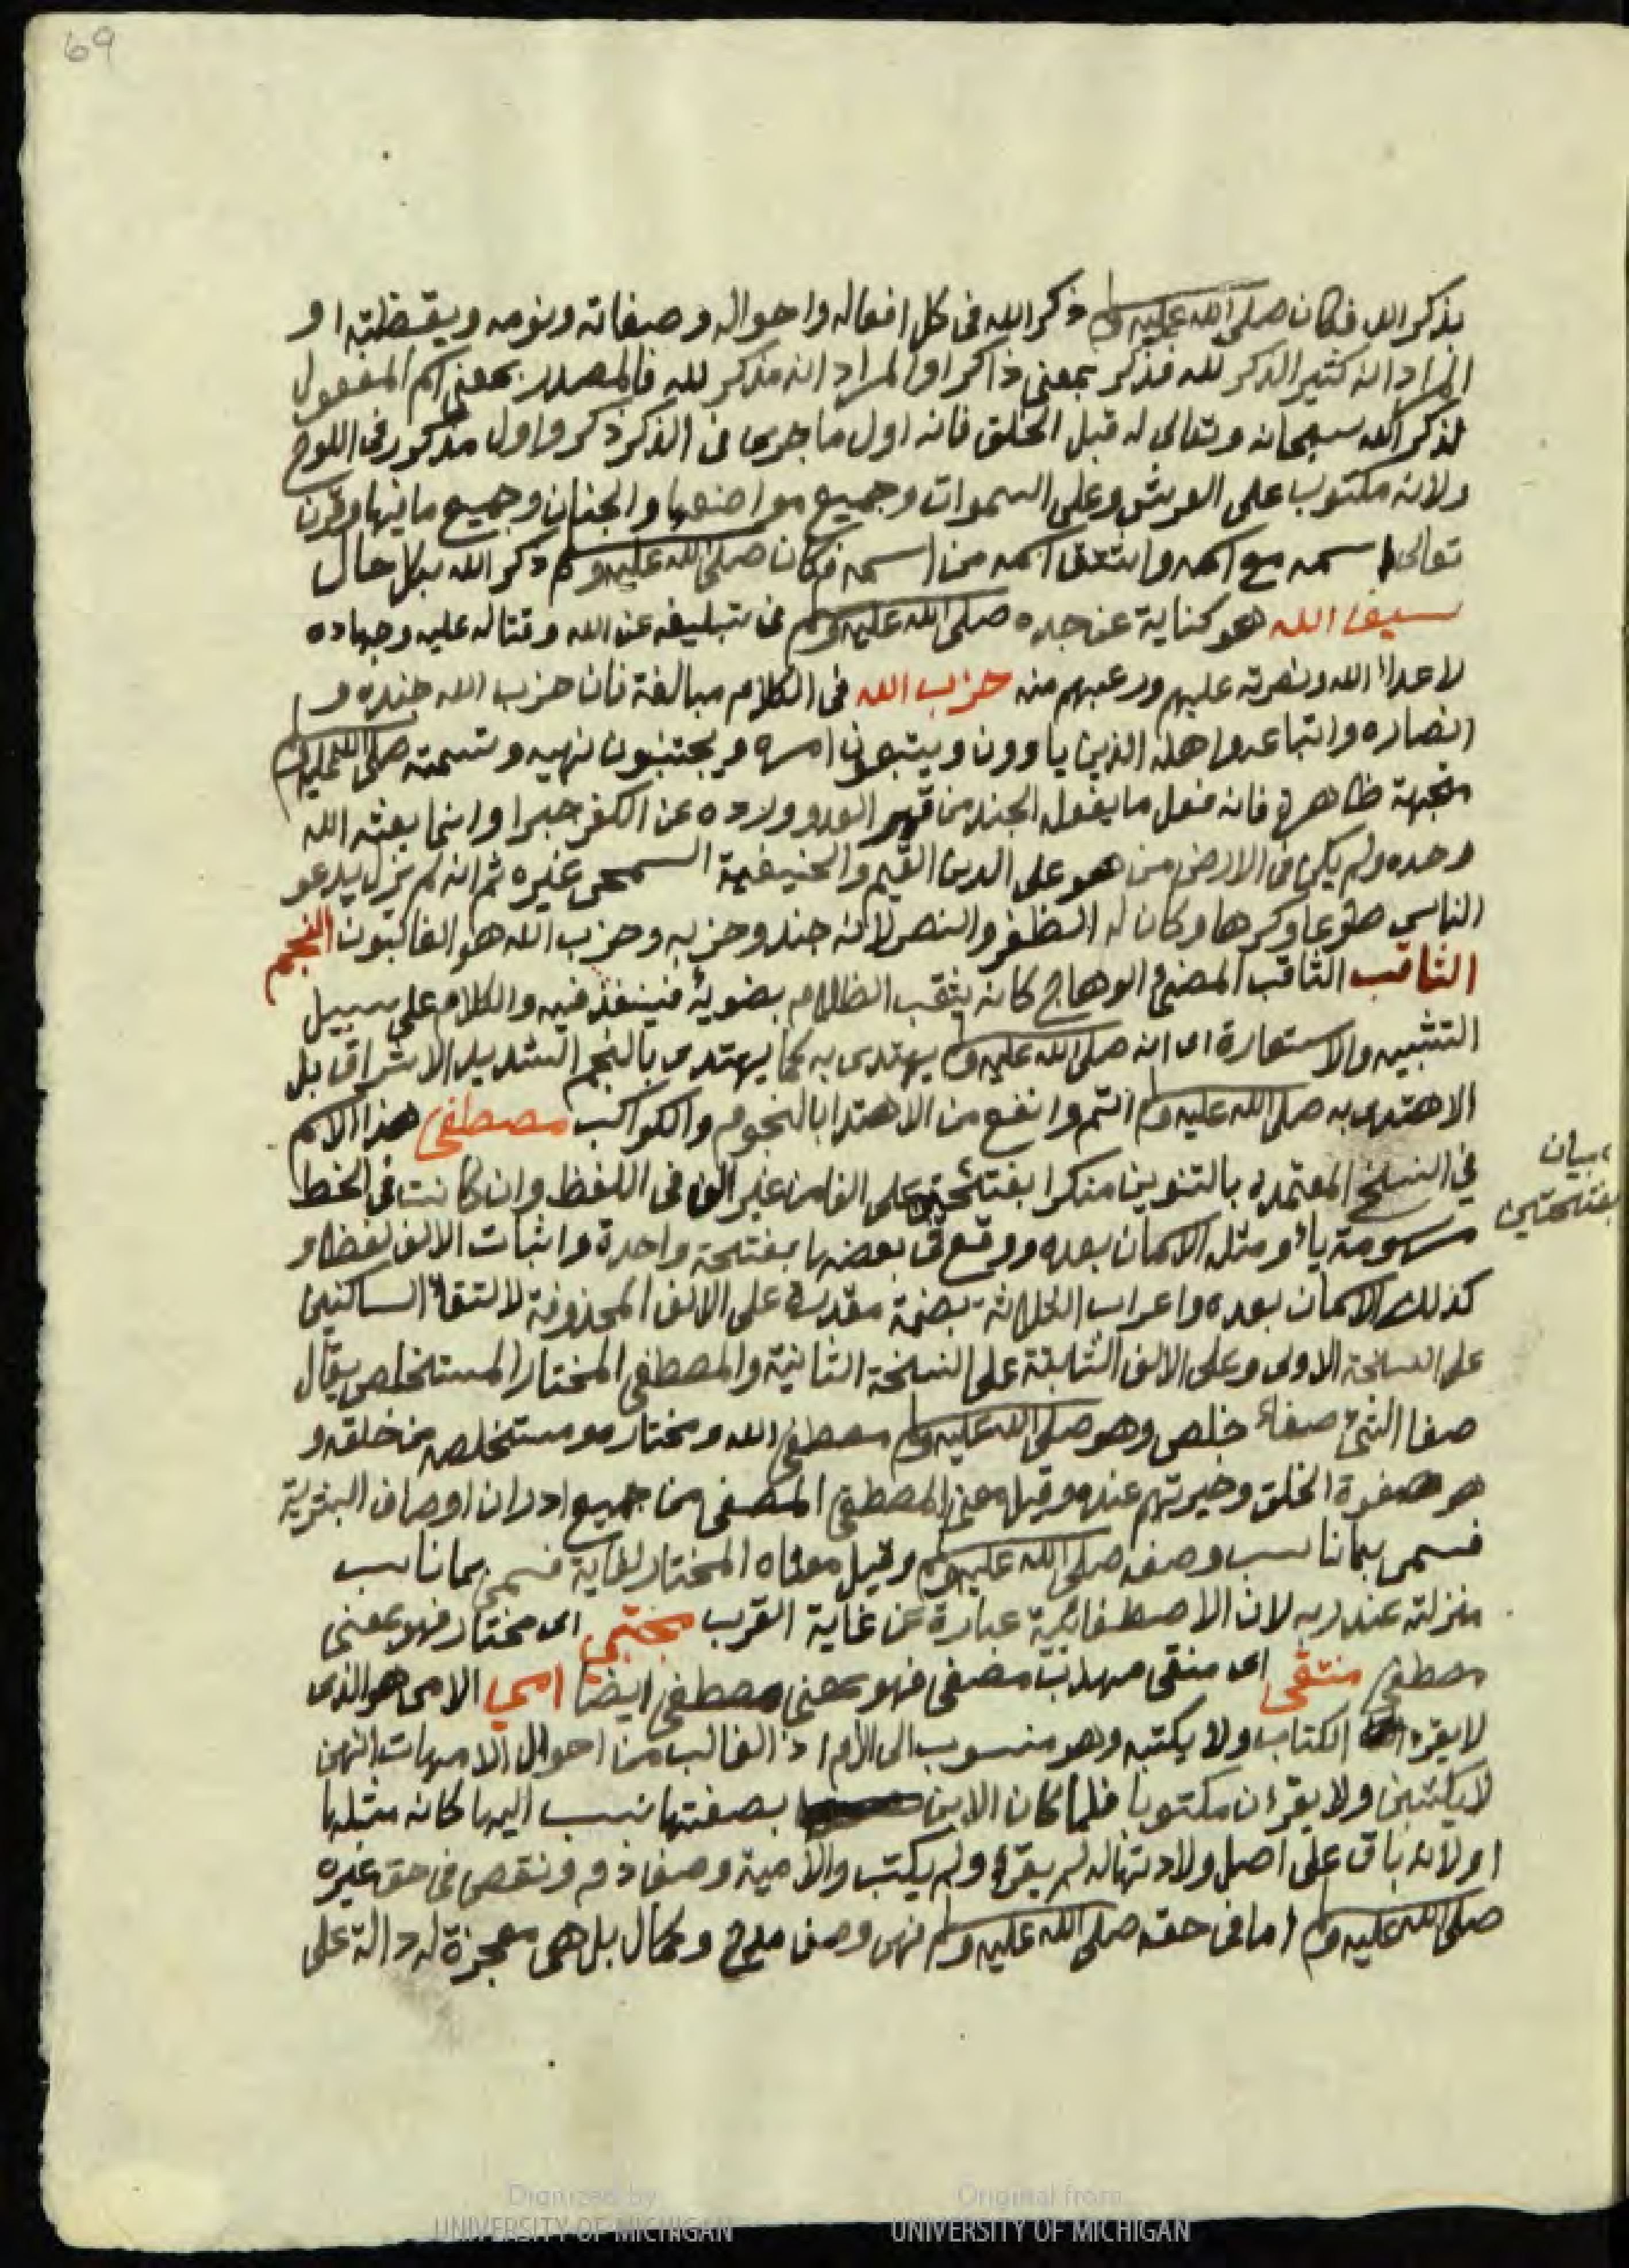 69
بذكر الله فكان صلى الله عليه وسلم ذكر الله في كل افعاله واحواله وصفاته ونومه ويقظته او
المراد انه كثير الذكر لله فذكر بمعنى ذاكر او المراد انه مذكر لله فالمصدر بمعنى اسم المفعول
لذكر الله سبحانه وتعالى له قبل الخلق فانه اول ما جرى في الذكر ذكر واول مذكور في اللوح
ولانه مكتوب على العرش وعلى السموات وجميع مواضعها والجنان وجميع ما فيها وقرن
تعالى اسمه مع اسمه واشتق اسمه من اسمه فكان صلى الله عليه وسلم ذكر الله بكل حال
سيف الله هو كناية عن جده صلى الله عليه وسلم في تبليغه عن الله وقتاله عليه وجهاده
لاعداا الله ونصرته عليهم ورعبهم منه حزب الله في الكلام مبالغة فان حزب الله جنده و
انصاره واتباعه واهله الذين ياوون ويتبعون امره ويجتنبون نهيه وتسميته صلى الله عليه وسلم
بجهة ظاهرة فانه فعل ما يفعل الجند من قهر العدو ورده عن الكفر جبرا وانما بعثه الله
وحده ولم يكن في الارض من هو على الدين القيم والحنيفية السمحى غيره ثم انه لم يزل يدعو
الناس طوعا وكرها وكان له الظفر والنصر لانه جند وحزبه وحزب الله هو الغالبون النجم
الثاقب الثاقب المضئ الوهاج كانه يثقب الظلام بضويه فينفذ فيه والكلام على سبيل
التشبيه والاستعارة اى انه صلى الله عليه وسلم يهتدى به كما يهتدى بالنجم الشديد الاشراق بل
الاهتدى به صلى الله عليه وسلم اتم وانفع من الاهتدا بالنجوم والكواكب مصطفى هذا الاسم
في النسخ المعتمده بالتنوين منكرا بفتحتين على الفا من غير الف في اللفظ وان كانت في الخط
بيان
بفتحتين
مرسومة ياء ومثله الاسمان بعده ووقع في بعضها بفتحة واحدة واثبات الالف لفظا و
كذلك الاسمان بعده واعراب الثلاثة بضمة مقدرة على الالف المحذوفة لالتقاء الساكنين
على النسخة الاولى وعلى الالف الثابتة على النسخة الثانية والمصطفى المختار المستخلص يقال
صفا الشئ صفاء خلص وهو صلى الله عليه وسلم مصطفى الله ومختاره ومستخلصه من خلقه و
هو صفوة الخلق وخيرتهم عنده وقيل معنى المصطفى المصفى من جميع ادران اوصاف البشرية
فسمى بما ناسب وصفه صلى الله عليه وسلم وقيل معناه المختار لغاية فسمى بما ناسب
منزلته عند ربه لان الاصطفائية عبارة عن غاية القرب مجتبى اى مختار فهو بمعنى
مصطفى منتقى اى منقى مهذب مصفى فهو بمعنى مصطفى ايضا امي الامى هو الذى
لا يقرء الكتاب ولا يكتبه وهو منسوب الى الام اذ الغالب من احوال الامهات انهن
لا يكتبن ولا يقرءن مكتوبا فلما كان الابن بصفتها نسب اليها كانه مثلها
او لانه باق على اصل ولادتها له لم يقرء ولم يكتب والامية وصف ذم ونقص في حق غيره
صلى الله عليه وسلم اما في حقه صلى الله عليه وسلم فهى وصف مدح وكمال بل هى معجزة له دالة على
Digitized by
UNIVERSITY OF MICHIGAN
Original from
UNIVERSITY OF MICHIGAN